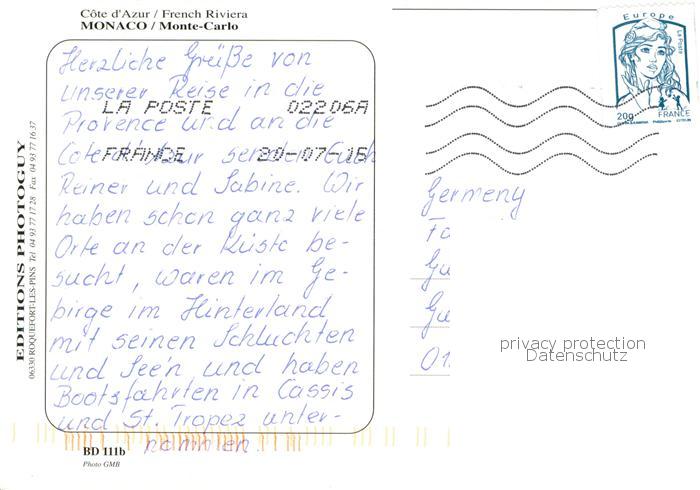 Côte d'Azur / French Riviera
MONACO / Monte-Carlo
Herzliche Grüße von
unserer Reise in die
Provence und an die
Cote d'Azur senden Euch
Reiner und Sabine. Wir
haben schon ganz viele
Orte an der Küste be-
sucht, waren im Ge-
birge im Hinterland
mit seinen Schluchten
und See'n und haben
Bootsfahrten in Cassis
und St. Tropez unter-
nommen.
LA POSTE 02206A
FRANCE 20-07-16
EDITIONS PHOTOGUY
06330 ROQUEFORT-LES-PINS Tél 04 93 77 17 28 Fax 04 93 77 16 37
BD 111b
Photo GMB
Europe
La Poste
20g
FRANCE
Germeny
Fa
Gu
Gu
01
privacy protection
Datenschutz